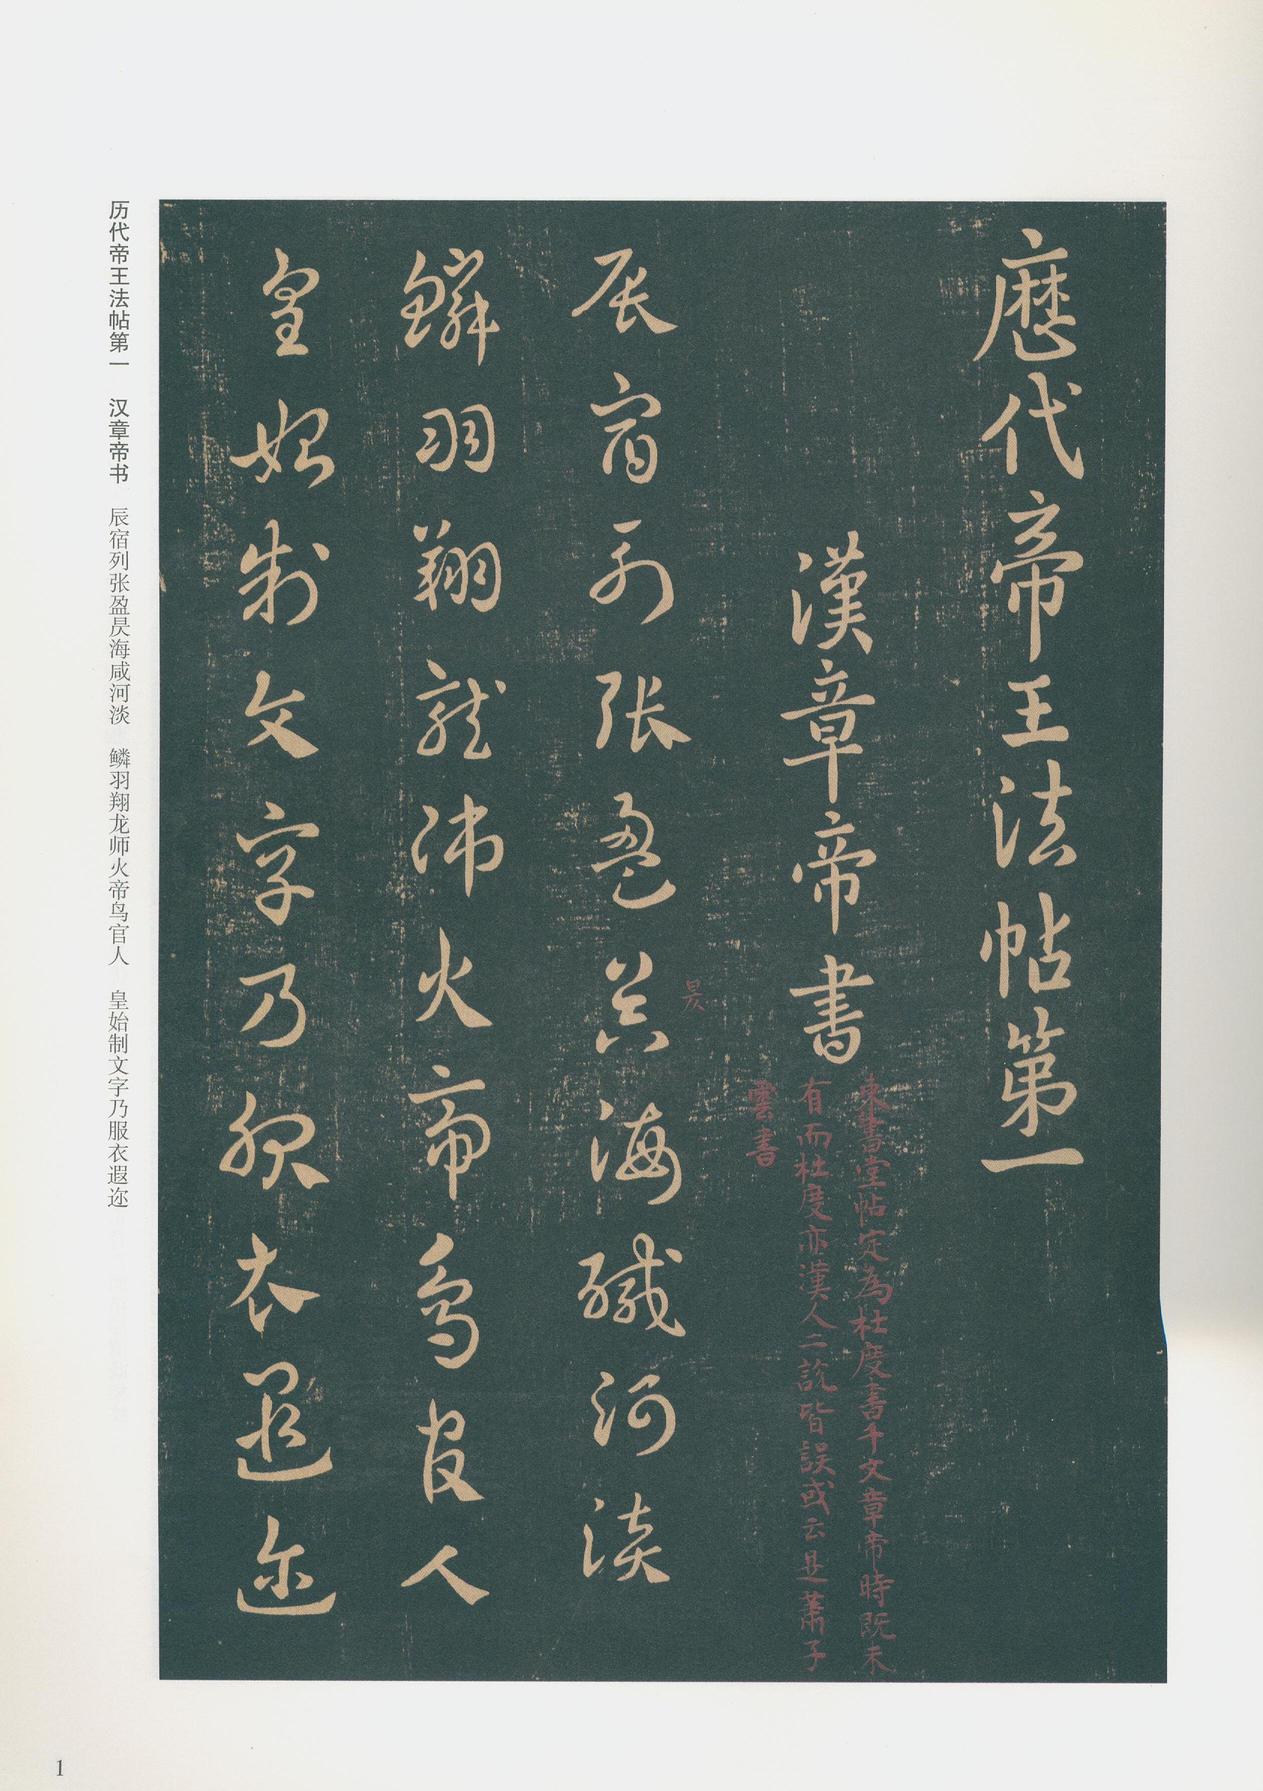 歷代帝王法帖第一
漢章帝書
東書堂帖定為杜度書千文章帝時既未
有而杜度亦漢人二説皆誤或云是蕭子
雲書
辰宿列張盈昃海醎河淡
昃
鱗羽翔龍師火帝鳥官人
皇始制文字乃服衣遐迩
历代帝王法帖第一 汉章帝书 辰宿列张盈昃海咸河淡 鳞羽翔龙师火帝鸟官人 皇始制文字乃服衣遐迩
1